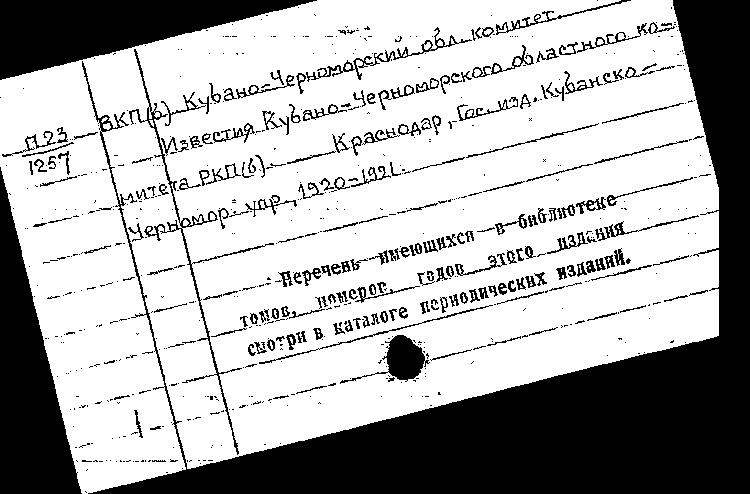 П23
1257
ВКП(б). Кубано-Черноморский обл. комитет.
Известия Кубано-Черноморского областного ко-
митета РКП(б). Краснодар, Гос. изд. Кубанско-
Черномор. упр., 1920-1921.
Перечень имеющихся в библиотеке
томов, номеров, годов этого издания
смотри в каталоге периодических изданий.